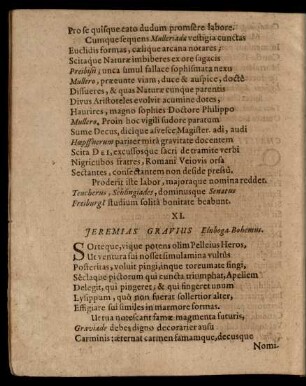 Pro se quisque cato dudum promsêre labore.
Cumque sequens Mulleriadæ vestigia cunctas
Euclidis formas, cælique arcana notares;
Scitaque Naturæ imbiberes ex ore sagacis
Presbyti; unca simul fallace sophismata nexu
Mullero, præeunte viam, duce & auspice, doctè
Dissueres, & quas Naturæ cunque parentis
Divus Aristoteles evolvit acumine dotes,
Haurires, magno sophies Doctore Philippo
Mullero, Proin hoc vigili sudore paratum
Sume Decus, dicique assvesce Magister. adi, audi
Höpffnerum pariter mira gravitate docentem
Scita DEI, excussosque sacri de tramite verbi
Nigricubos fratres, Romani Veiovis orsa
Sectantes, consectantem non deside presu.
Proderit iste labor, majoraque nomina reddet.
Teucherus, Schlingiades, dominusque Senatus
Freiburg! studium solitâ bonitate beabunt.
XI.
JEREMIAS GRAVIUS Elnboga-Bohemus.
SOrteque, vique potens olim Pelleius Heros,
Ut ventura sui nosset simulamina vultûs
Posteritas, voluit pingi, inque toreumate fingi,
Sèclaque pictorum qui cuncta triumphat, Apellem
Delegit, qui pingeret; & qui fingeret unum
Lysippum, quô non fuerat sollertior alter,
Effigiare sui similes in marmore formas.
Ut tua notescant famæ magmenta futuris,
Graviade debes digno decorarier ausu
Carminis: æternat carmen famamque, decusque
Nomi-